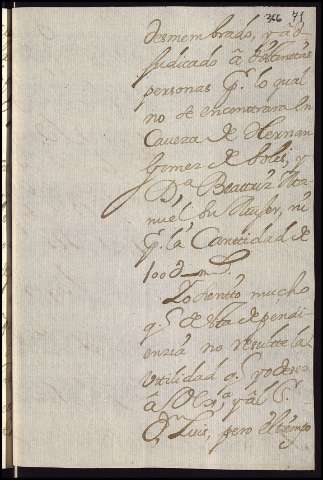 366 71
desmembrado, y ad
judicado â distintas
personas q.e lo qual
no se encontrara en
Caveza de Hernan
Gomez de Solis, y
D.a Beatriz Ma
nuel su Muger, ni
p.r la Cantidad de
100
Yo siento mucho
q.e de esta dependi
enzia no resulte la
Utilidad q.e
â y al S.r
D.n Luis, pero el tiempo